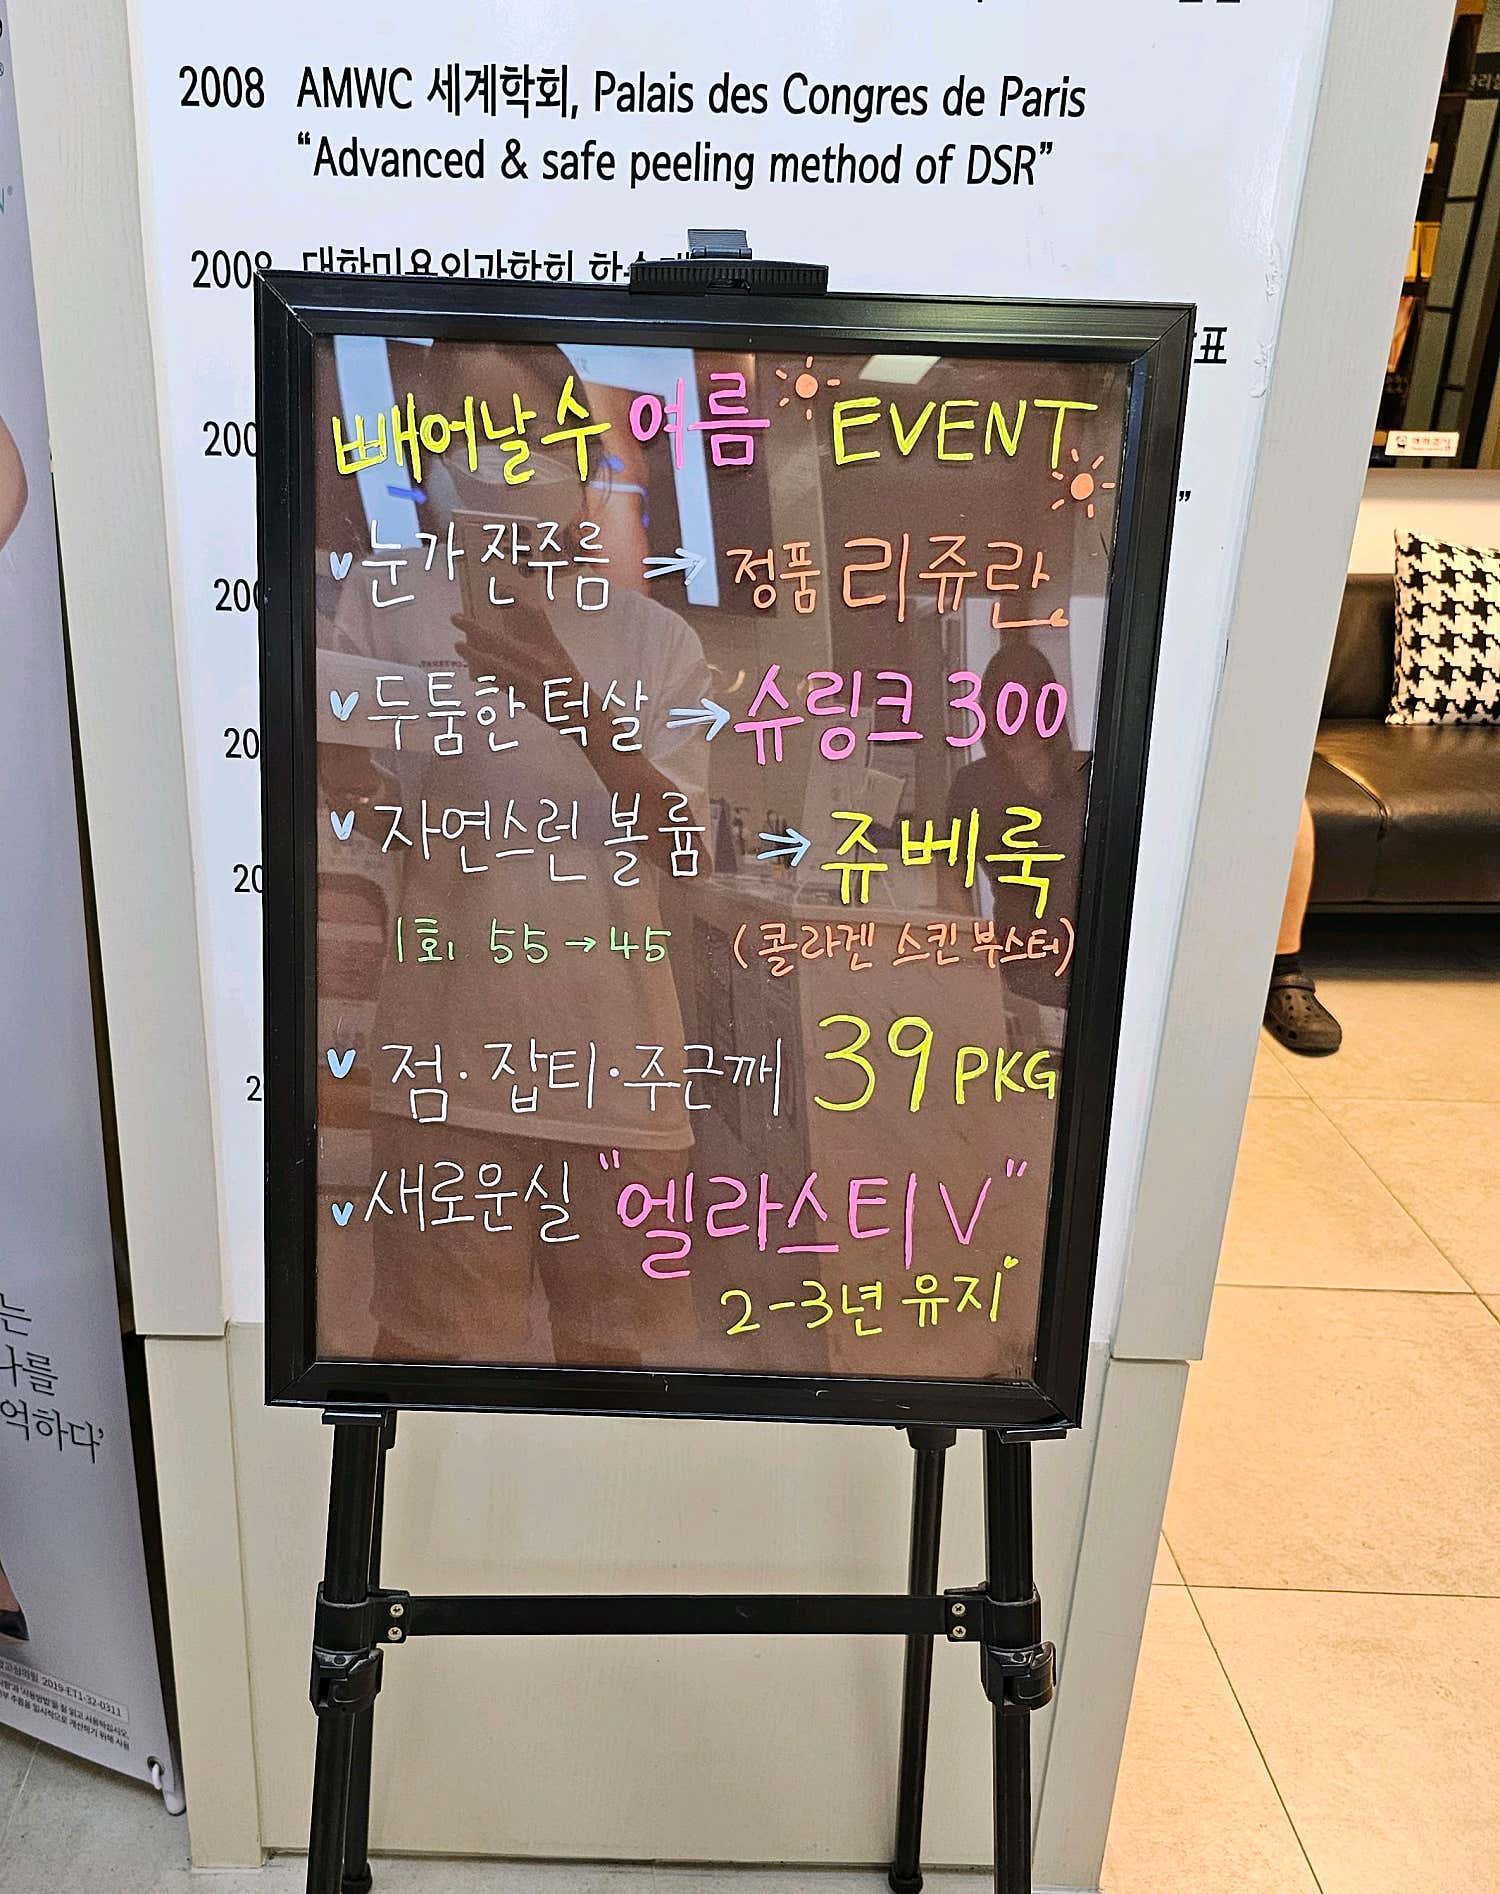 2008 AMWC 세계학회, Palais des Congres de Paris
“Advanced & safe peeling method of DSR”
2008 대한미용외과학회
표
빼어날수 여름 EVENT
눈가 잔주름 → 정품 리쥬란
두툼한 턱살 → 슈링크 300
자연스런 볼륨 → 쥬베룩
1회 55→45 (콜라겐 스킨부스터)
점·잡티·주근깨 39 PKG
새로운실 "엘라스티V"
2-3년 유지
는
나를
억하다’
2019-ET1-32-0311